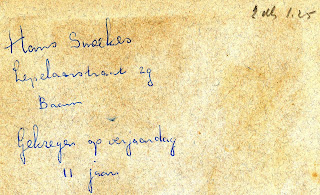 Hans Snoekes
Lepelaarstraat 29
Baarn
Gekregen op verjaardag
11 jaar
1.25